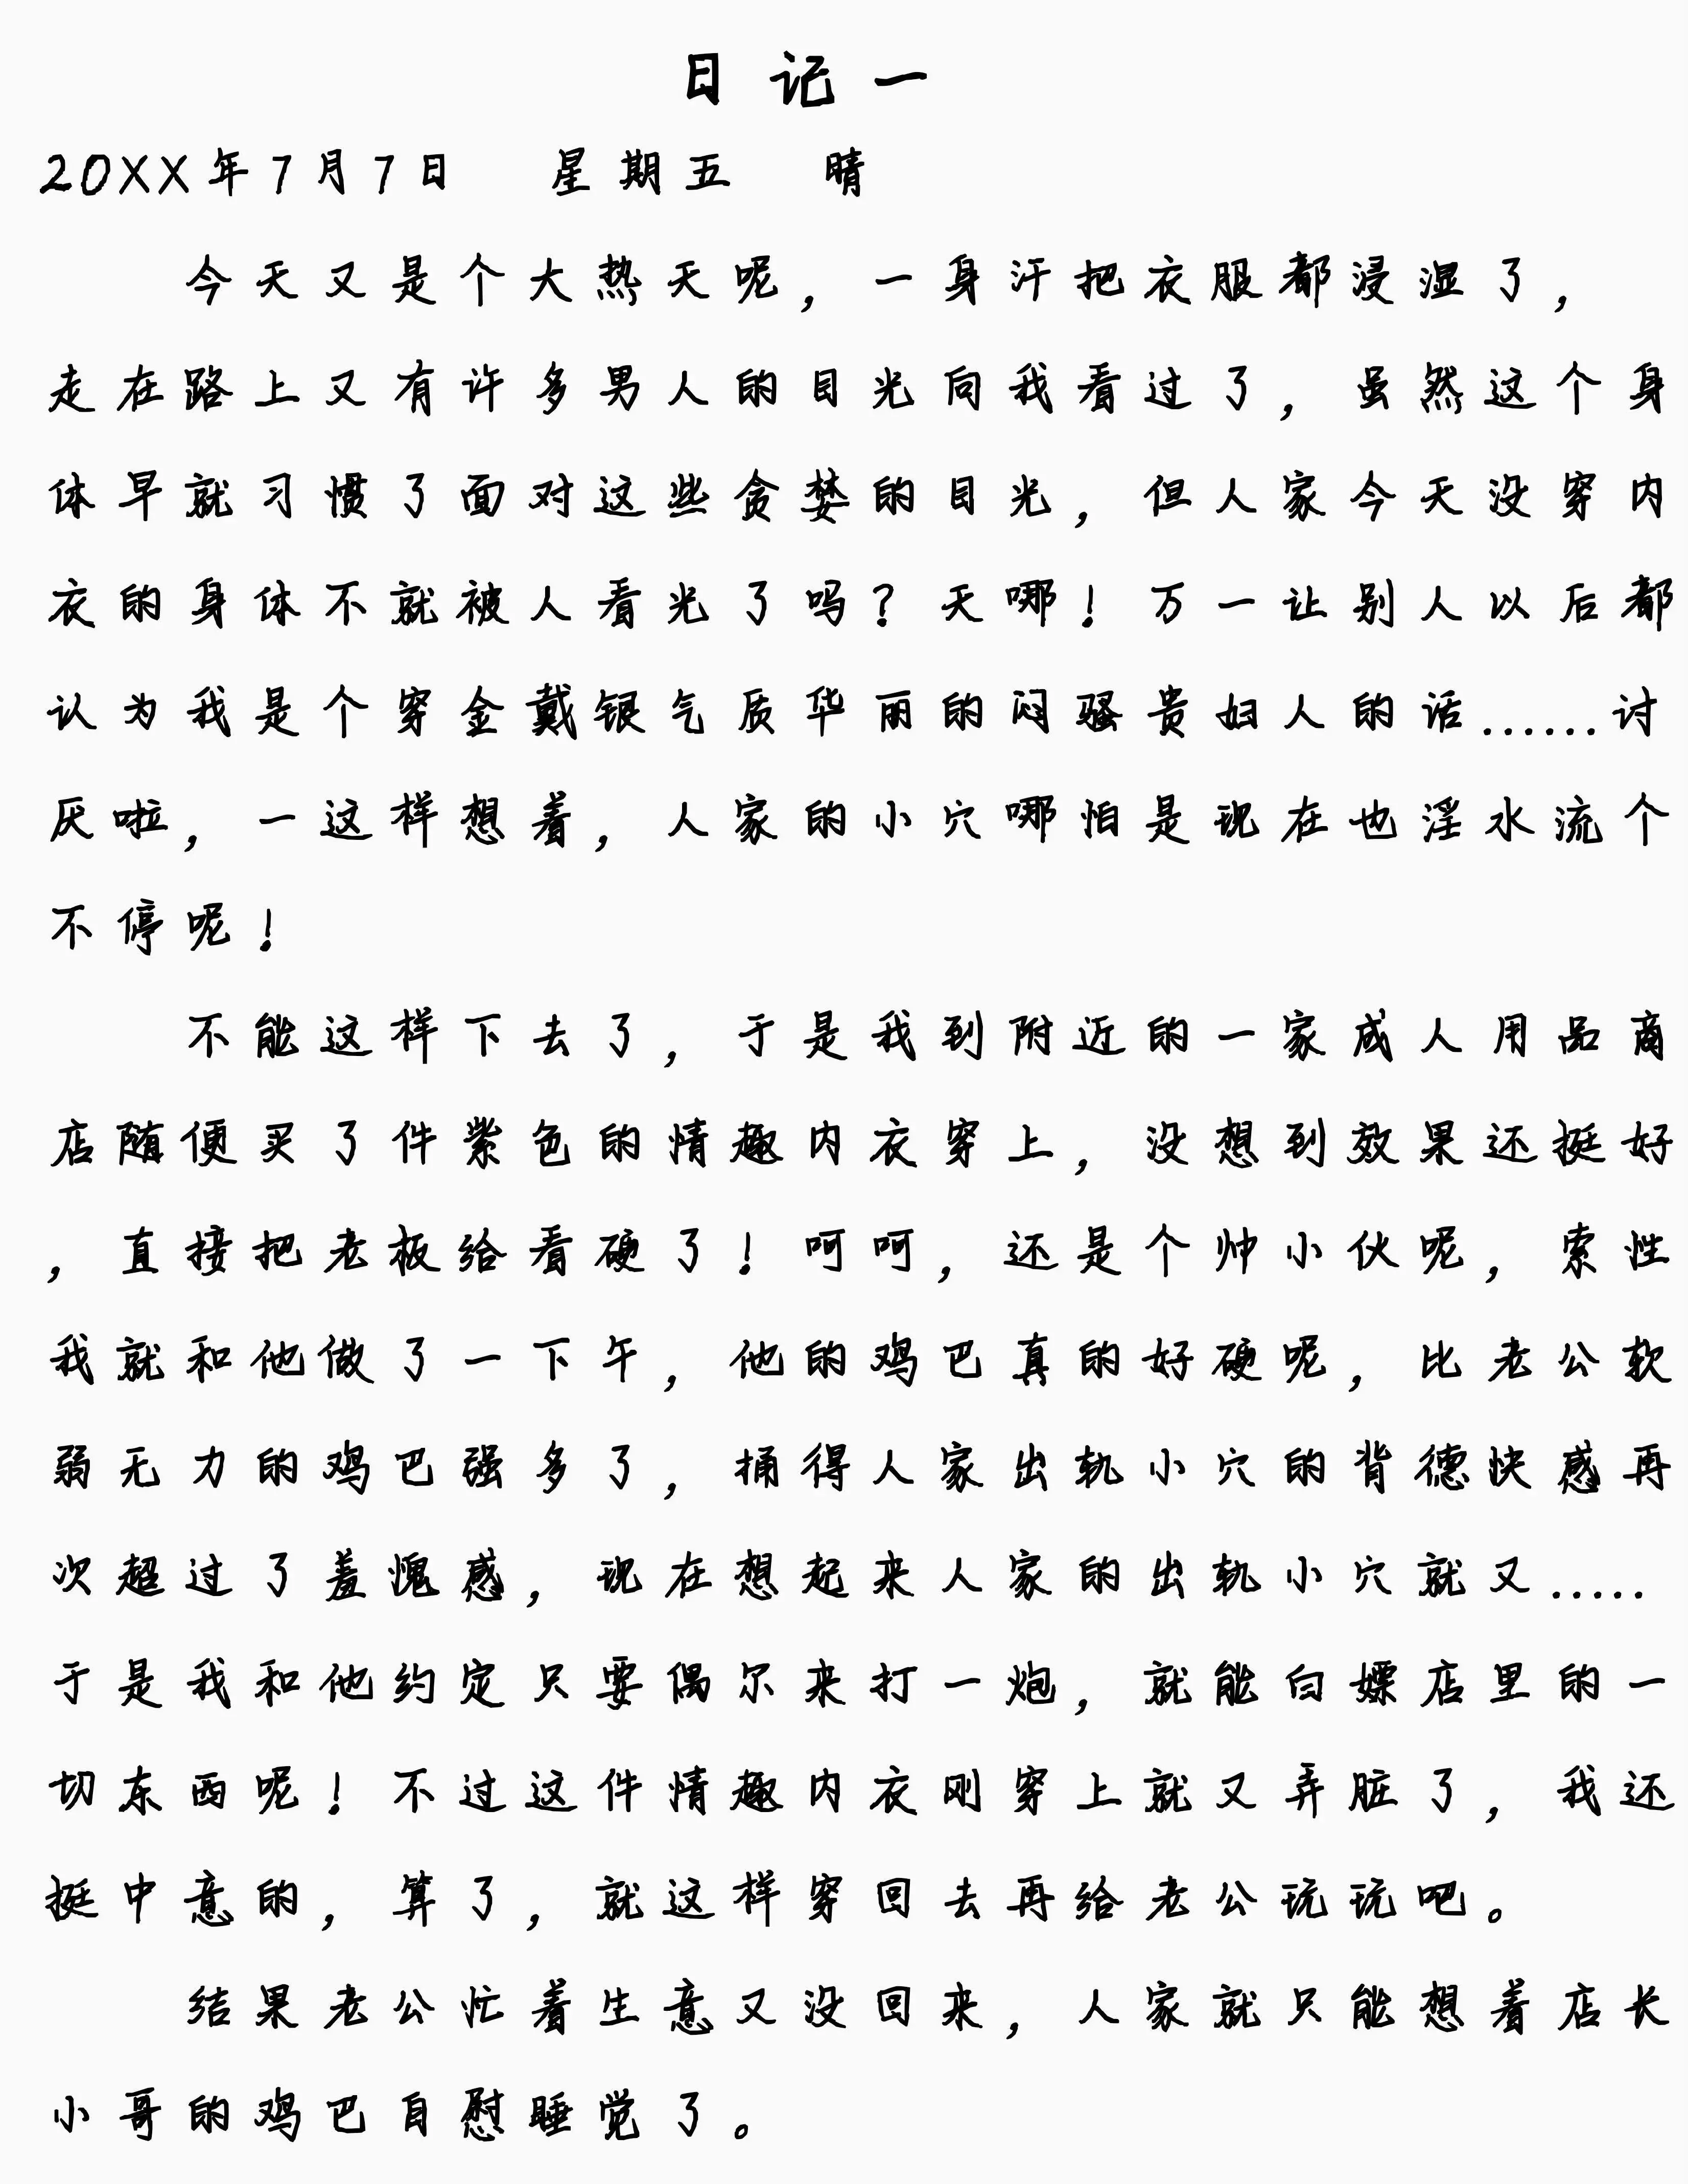 日记一
20XX年7月7日 星期五 晴
今天又是个大热天呢，一身汗把衣服都浸湿了，
走在路上又有许多男人的目光向我看过了，虽然这个身
体早就习惯了面对这些贪婪的目光，但人家今天没穿内
衣的身体不就被人看光了吗？天哪！万一让别人以后都
认为我是个穿金戴银气质华丽的闷骚贵妇人的话......讨
厌啦，一这样想着，人家的小穴哪怕是现在也淫水流个
不停呢！
不能这样下去了，于是我到附近的一家成人用品商
店随便买了件紫色的情趣内衣穿上，没想到效果还挺好
，直接把老板给看硬了！呵呵，还是个帅小伙呢，索性
我就和他做了一下午，他的鸡巴真的好硬呢，比老公软
弱无力的鸡巴强多了，捅得人家出轨小穴的背德快感再
次超过了羞愧感，现在想起来人家的出轨小穴就又.....
于是我和他约定只要偶尔来打一炮，就能白嫖店里的一
切东西呢！不过这件情趣内衣刚穿上就又弄脏了，我还
挺中意的，算了，就这样穿回去再给老公玩玩吧。
结果老公忙着生意又没回来，人家就只能想着店长
小哥的鸡巴自慰睡觉了。